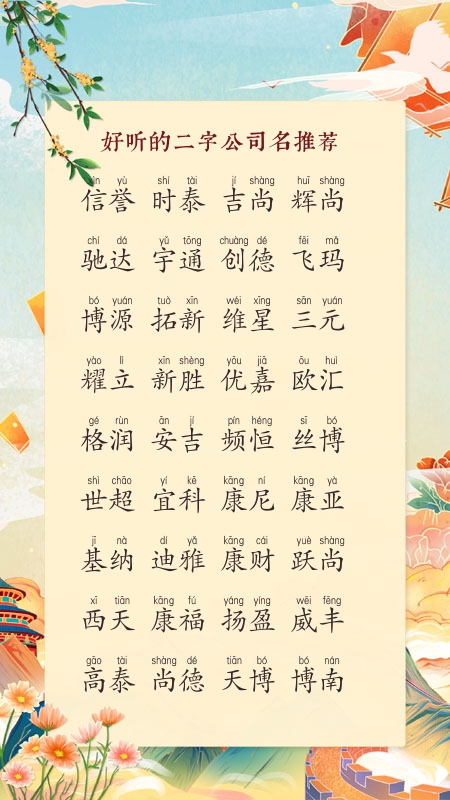 好听的二字公司名推荐
xìn yù shí tài jí shàng huī shàng
信誉 时泰 吉尚 辉尚
chí dá yǔ tōng chuàng dé fēi mǎ
驰达 宇通 创德 飞玛
bó yuán tuò xīn wéi xīng sān yuán
博源 拓新 维星 三元
yào lì xīn shèng yōu jiā ōu huì
耀立 新胜 优嘉 欧汇
gé rùn ān jí pín héng sī bó
格润 安吉 频恒 丝博
shì chāo yí kē kāng ní kāng yà
世超 宜科 康尼 康亚
jī nà dí yǎ kāng cái yuè shàng
基纳 迪雅 康财 跃尚
xī tiān kāng fú yáng yíng wēi fēng
西天 康福 扬盈 威丰
gāo tài shàng dé tiān bó bó nán
高泰 尚德 天博 博南